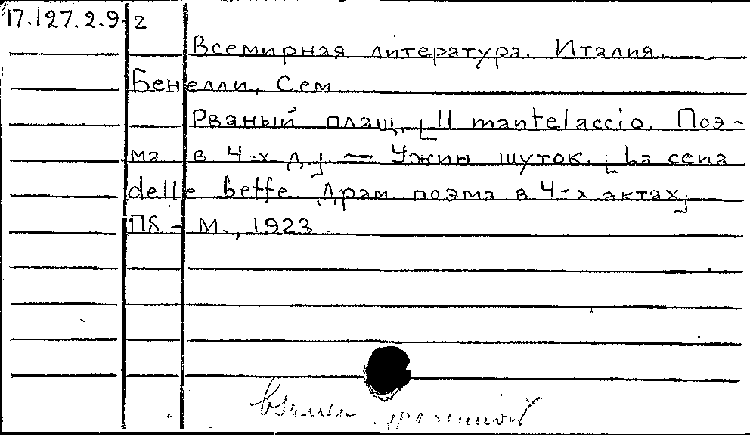 17.127.2.9-2
Всемирная литература. Италия.
Бенелли, Сем
Рваный плащ. [Il mantelaccio. Поэ-
ма в 4-х д.] — Ужин шуток. [La cena
delle beffe. Драм поэма в 4-х актах]
Пб - М., 1923